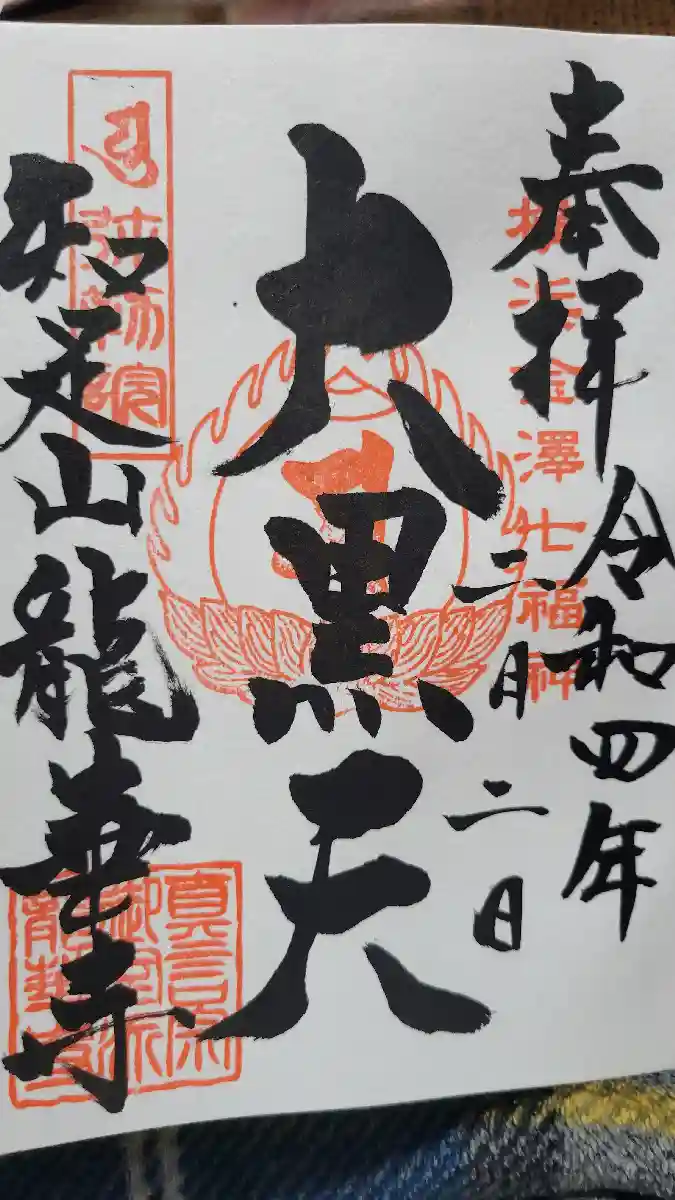 奉拝
令和四年
二月二日
横浜金澤七福神
大黒天
弥勒院
知足山龍華寺
真言宗
御室派
龍華寺